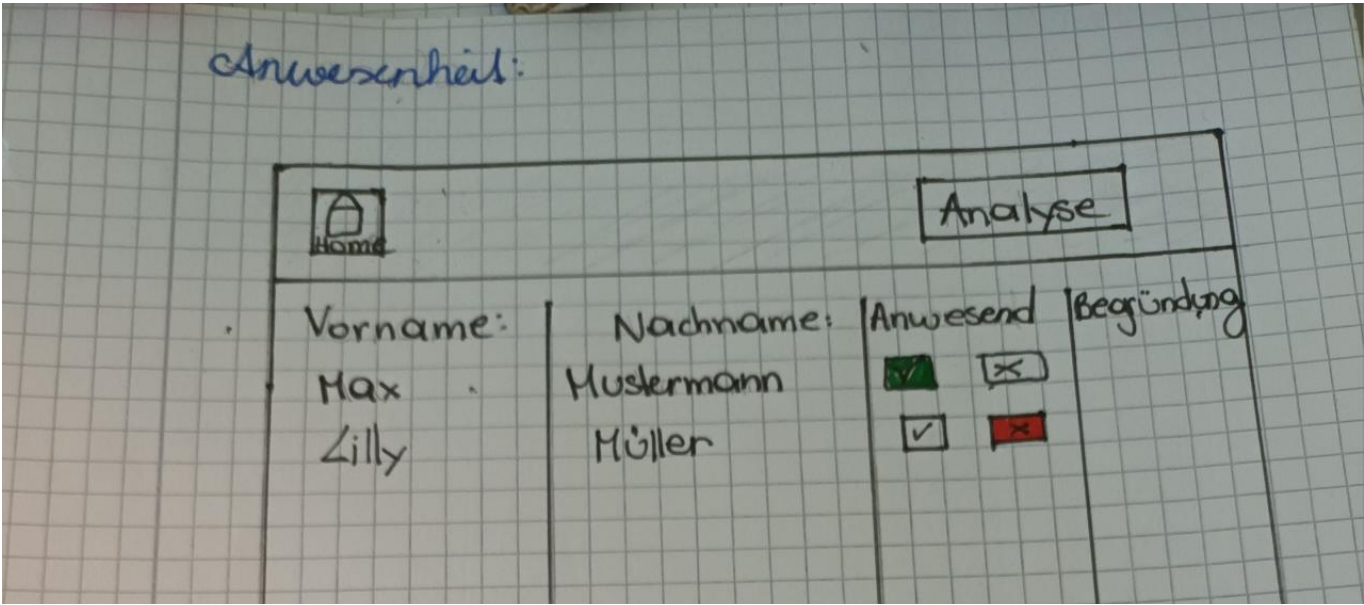 Anwesenheit:
Home
Analyse
Vorname: Nachname: Anwesend Begründung
Max Mustermann ✓ ✗
Lilly Müller ✓ ✗